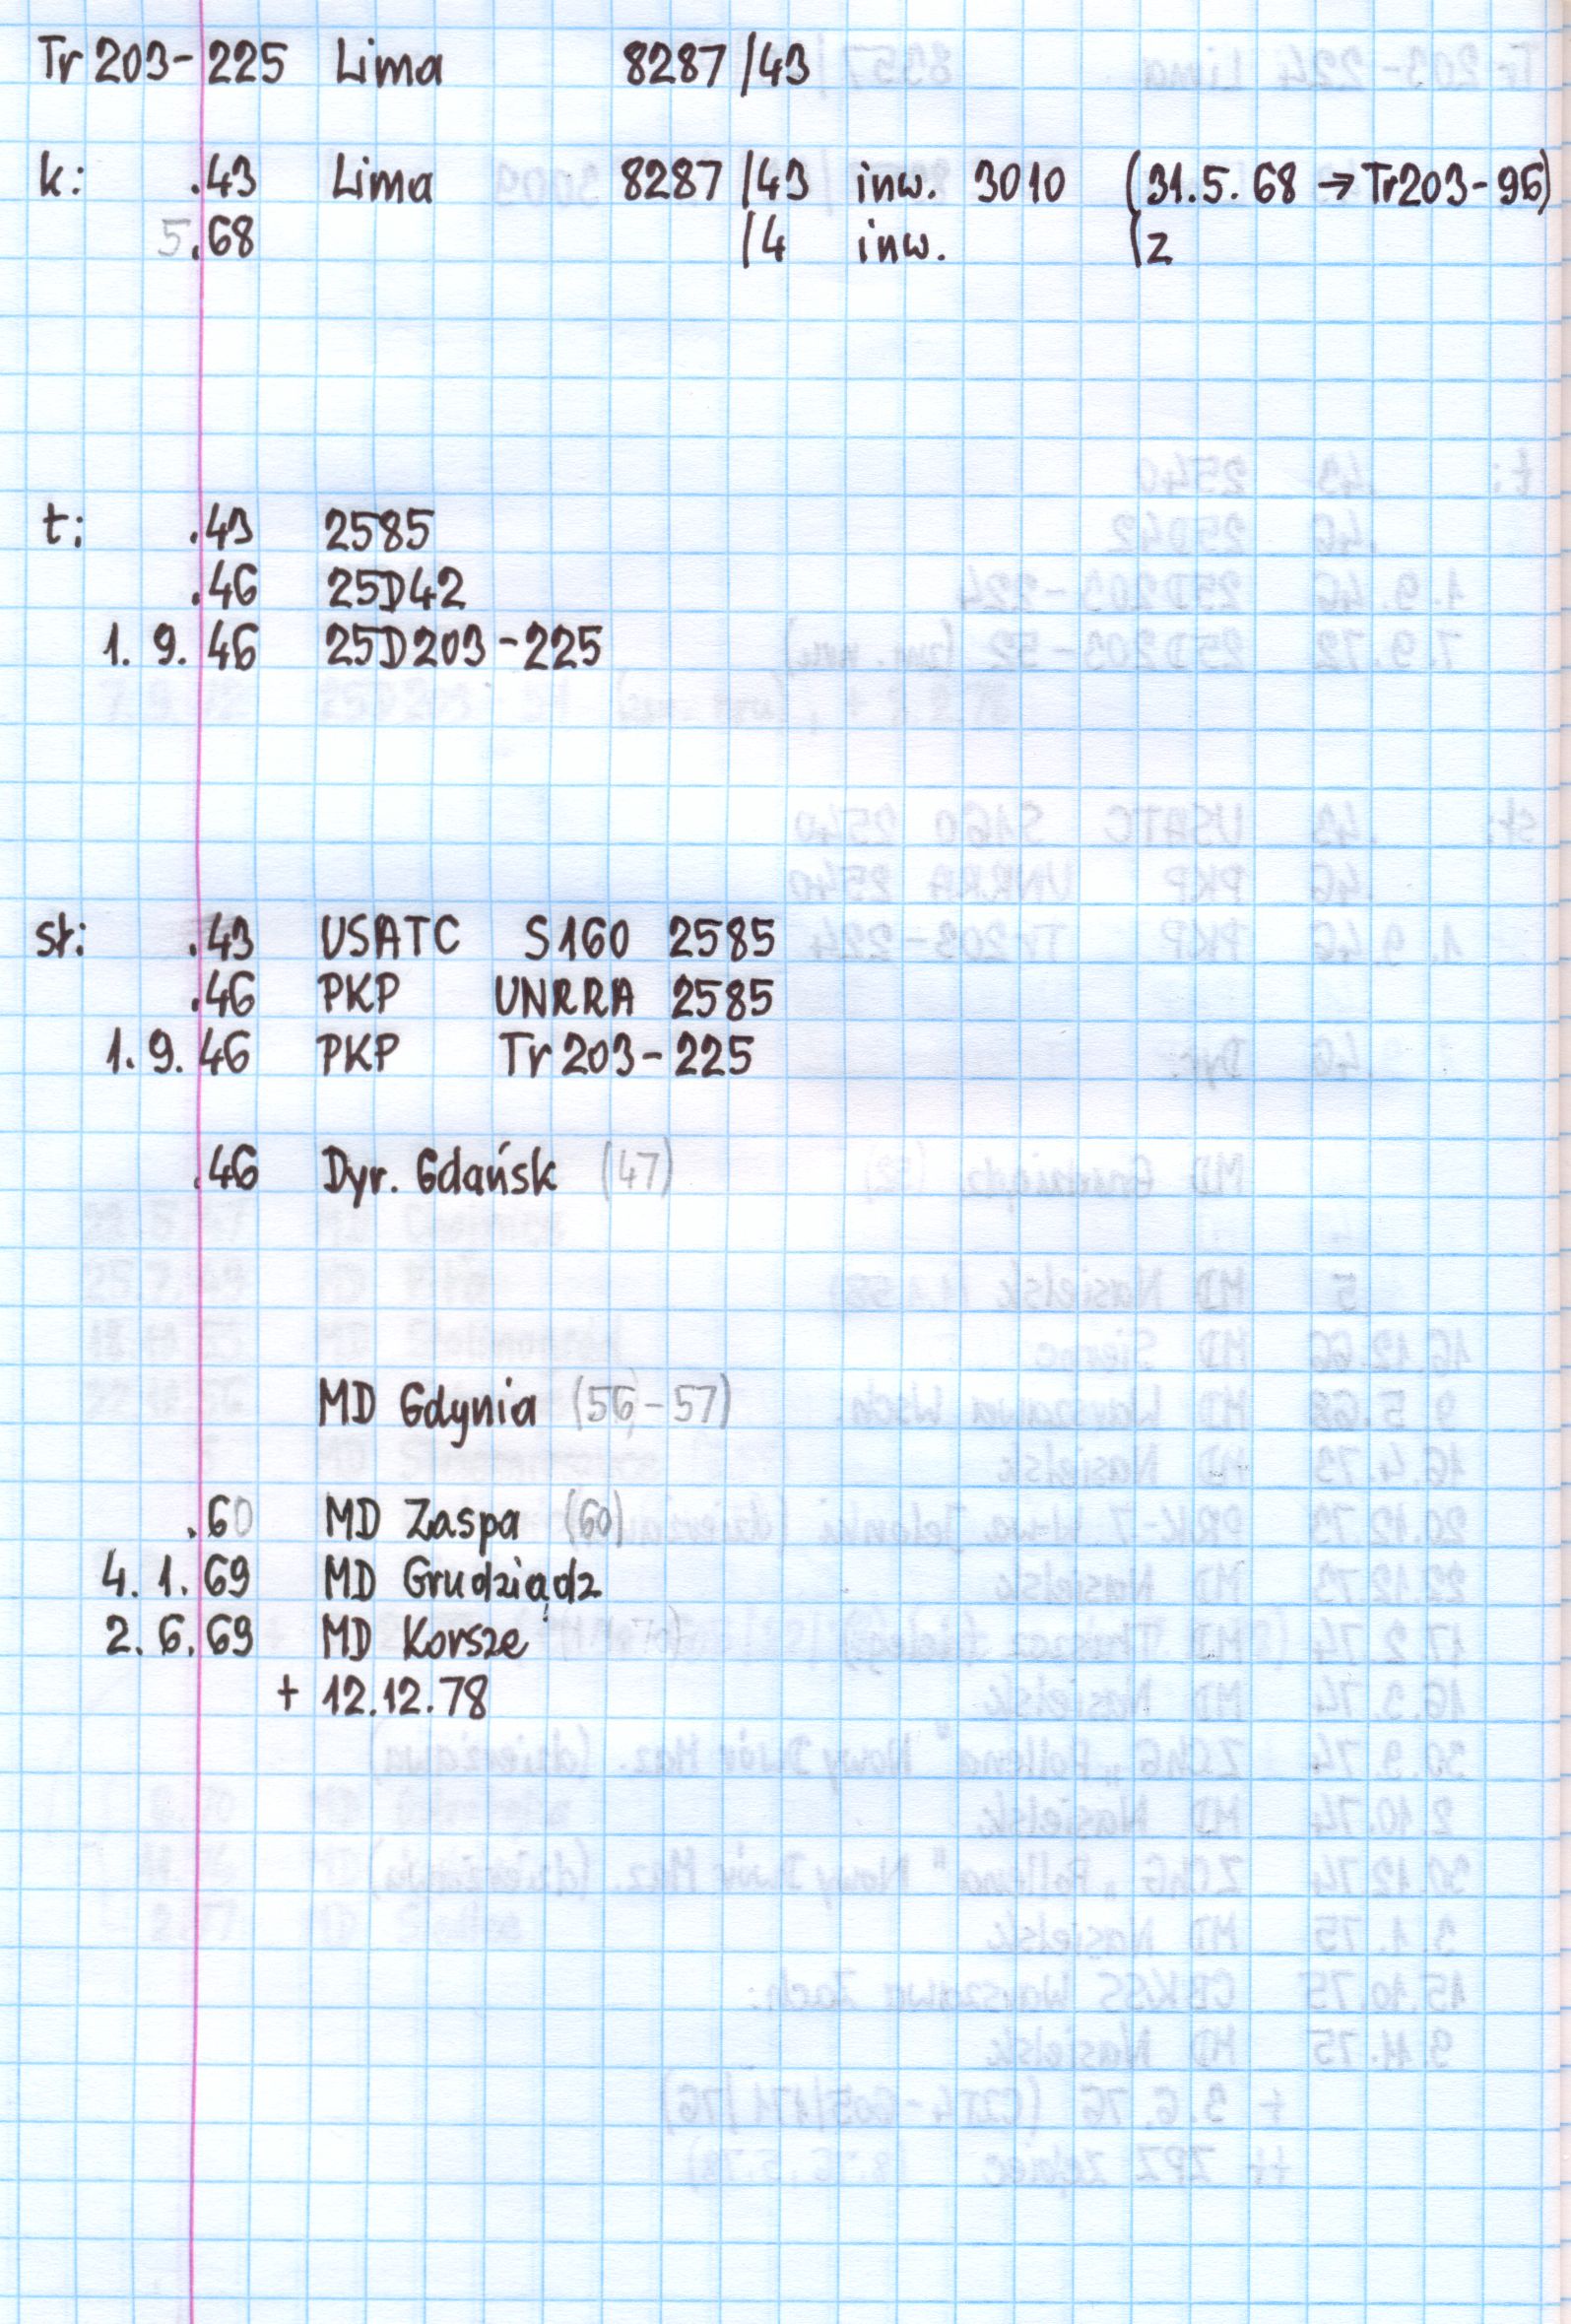 Tr 203-225 Lima 8287/43
k: .43 Lima 8287/43 inw. 3010 (31.5.68 → Tr203-96)
5.68 /4 inw. (z
t: .43 2585
.46 25D42
1.9.46 25D203-225
st: .43 USATC S160 2585
.46 PKP UNRRA 2585
1.9.46 PKP Tr 203-225
.46 Dyr. Gdańsk (47)
MD Gdynia (56-57)
.60 MD Zaspa (60)
4.1.69 MD Grudziądz
2.6.69 MD Korsze
+ 12.12.78